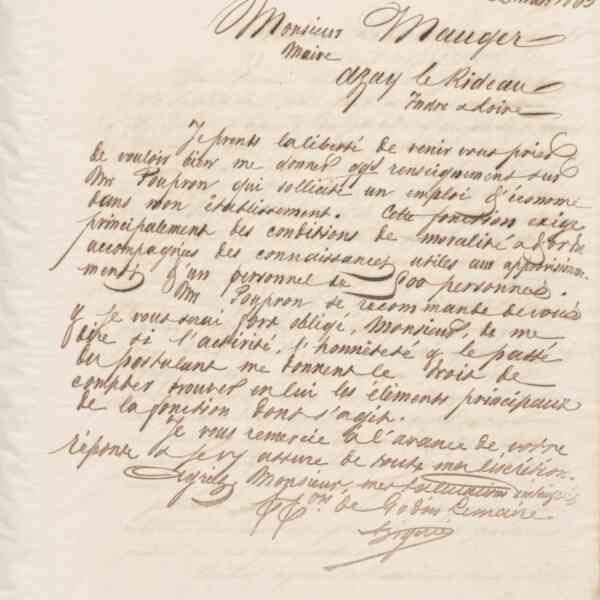 Monsieur Mauger
Maire
azay le Rideau
Indre & Loire
Je prends la liberté de venir vous prier
de vouloir bien me donner qqs renseignements sur
Mr Poupron qui sollicite un emploi d'économe
dans mon établissement. Cette fonction exige
principalement des conditions de moralité & d'ordre
accompagnées des connaissances utiles aux approvision-
nements d'un personnel de 900 personnes.
Mr Poupron se recommande de vous
& je vous serai fort obligé, Monsieur, de me
dire si l'activité, l'honnêteté & le passé
du postulant me donnent le droit de
compter trouver en lui les éléments principaux
de la fonction dont s'agit.
Je vous remercie à l'avance de votre
réponse & vs assure de toute ma discrétion.
Agréez Monsieur mes salutations
de Godin Lemaire